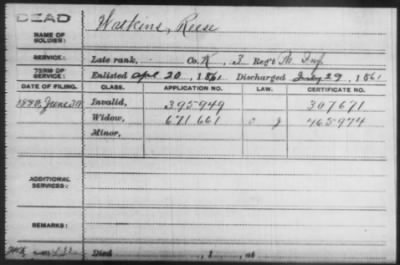 DEAD
NAME OF SOLDIER: Watkins, Reese
SERVICE: Late rank, Co. K, 3 Reg't Pa. Inf
TERM OF SERVICE: Enlisted Apl 20, 1861 Discharged July 29, 1861
DATE OF FILING. CLASS. APPLICATION NO. LAW. CERTIFICATE NO.
1880 June Invalid, 395949 307671
Widow, 671661 465974
Minor,
ADDITIONAL SERVICES:
REMARKS:
Died , 1 , at